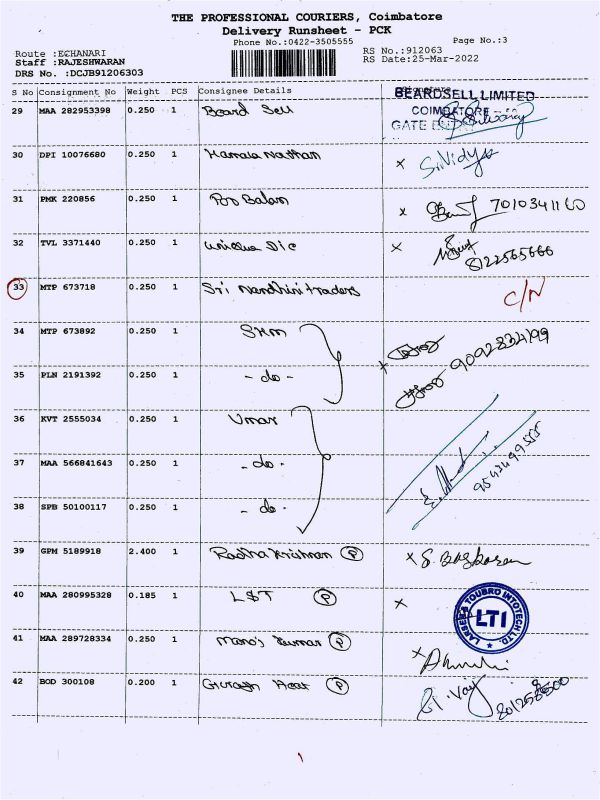 THE PROFESSIONAL COURIERS, Coimbatore
Delivery Runsheet - PCK
Phone No.:0422-3505555 Page No.:3
Route :ECHANARI RS No.:912063
Staff :RAJESHWARAN RS Date:25-Mar-2022
DRS No. :DCJB91206303
S No Consignment No Weight PCS Consignee Details
BEARDSELL LIMITED
COIMBATORE
GATE ENTRY
29 MAA 282953398 0.250 1 Beard Sell
30 DPI 10076680 0.250 1 Kamala Nathan x Sri Vidya
31 PMK 220856 0.250 1 Pon Balan x 7010341160
32 TVL 3371440 0.250 1 Unique Dic x 8122565666
33 MTP 673718 0.250 1 Sri Nandhini traders C/N
34 MTP 673892 0.250 1 SKM x 9092834199
35 PLN 2191392 0.250 1 - do -
36 KVT 2555034 0.250 1 Umar
37 MAA 566841643 0.250 1 - do -
38 SPB 50100117 0.250 1 - do -
39 GPM 5189918 2.400 1 Radha Krishnan P x S. Baskaran
40 MAA 280995328 0.185 1 L&T P x
LARSEN & TOUBRO INFOTECH LTD.
LTI
41 MAA 289728334 0.250 1 Manoj Kumar P x
42 BOD 300108 0.200 1 P